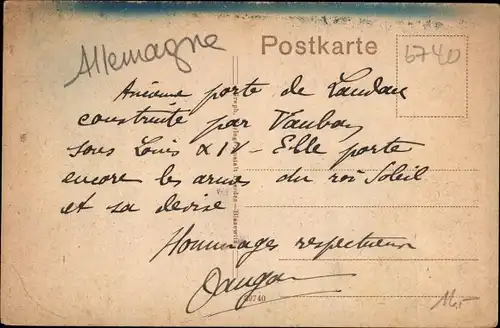 Allemagne
Postkarte
6740
Ancienne porte de Landau
construite par Vauban
sous Louis XIV - Elle porte
encore les armes du roi Soleil
et sa devise
Hommages respectueux
69740